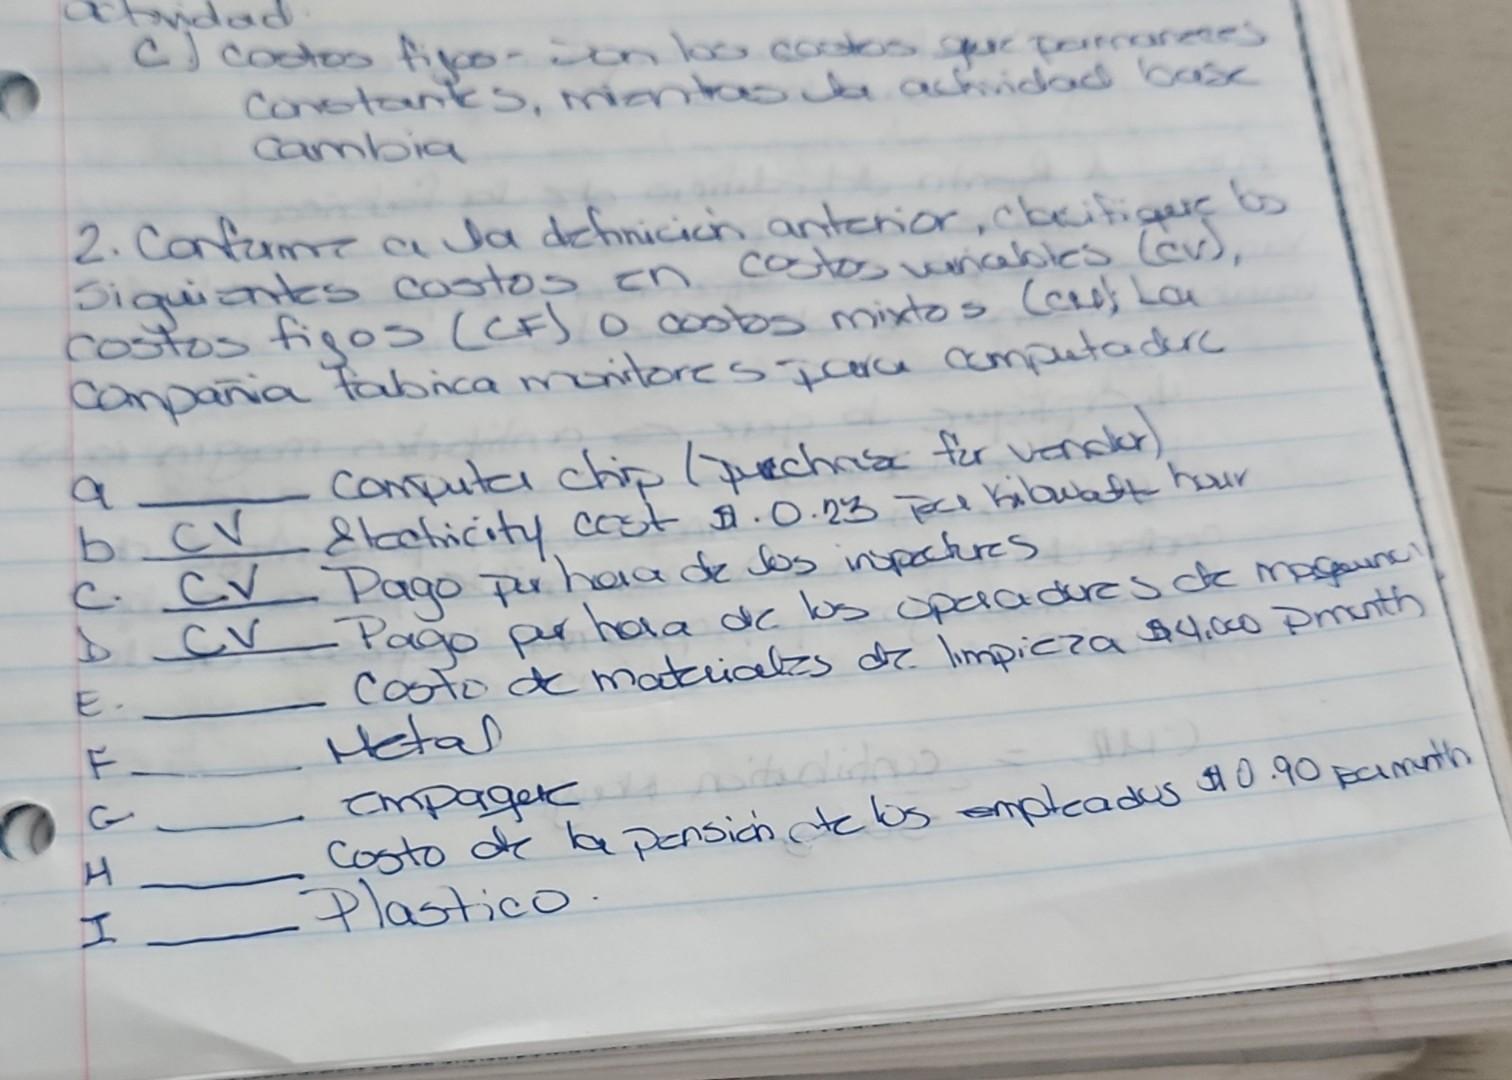 actividad
C) Costos figos - son los costos que permaneces
constantes, mientras la actividad base
cambia
2. Conforme a la definición anterior, clasifique los
siguientes costos en costos variables (CV),
costos figos (CF) o costos mixtos (CM), La
Compañia fabrica monitores para computadora
a ____ Computer chip (purchase for vender)
b. CV Electricity cost $.0.23 per kilowatt hour
C. CV Pago por hora de los inspectores
D CV Pago por hora de los operadores de
E. ____ Costo de materiales de limpieza $4,000 p month
F ____ Metal
G ____ Empaque
H ____ Costo de la pensión de los empleados $0.90 per month
I ____ Plastico.